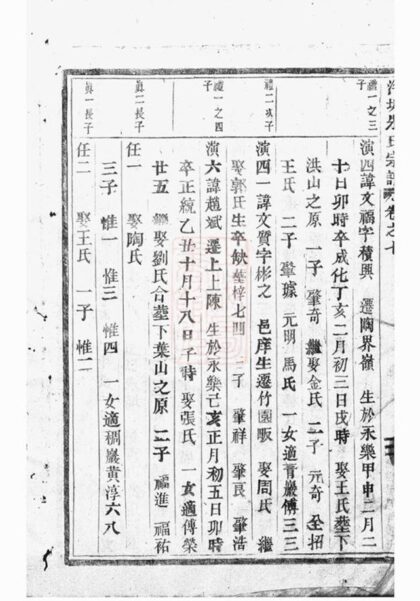 宗譜 卷之七
禮一之三子
演四諱文福字積興 遷陶界嶺 生於永樂甲申二月二
十日卯時卒成化丁亥二月初三日戌時 娶王氏塟下
洪山之原 一子 肇奇 繼娶金氏 二子 元奇 全招
王氏 二子 肇璩 元明 馬氏 一女適青巖傅三三
禮二次子
演四一諱文質字彬之 邑庠生遷竹園畈 娶周氏 繼
娶郭氏生卒缺塟梓七門 三子 肇祥 肇良 肇浩
禮一之四子
演六諱趙斌 遷上上陳 生於永樂己亥正月初五日卯時
卒正統乙丑十月十八日子時 娶張氏 一女適傅榮
廿五 繼娶劉氏合塟下葉山之原 二子 福進 福祐
眞二長子
任一 娶陶氏
三子 惟一 惟三 惟四 一女適稠巖黃淳六八
眞一長子
任二 娶王氏 一子 惟二